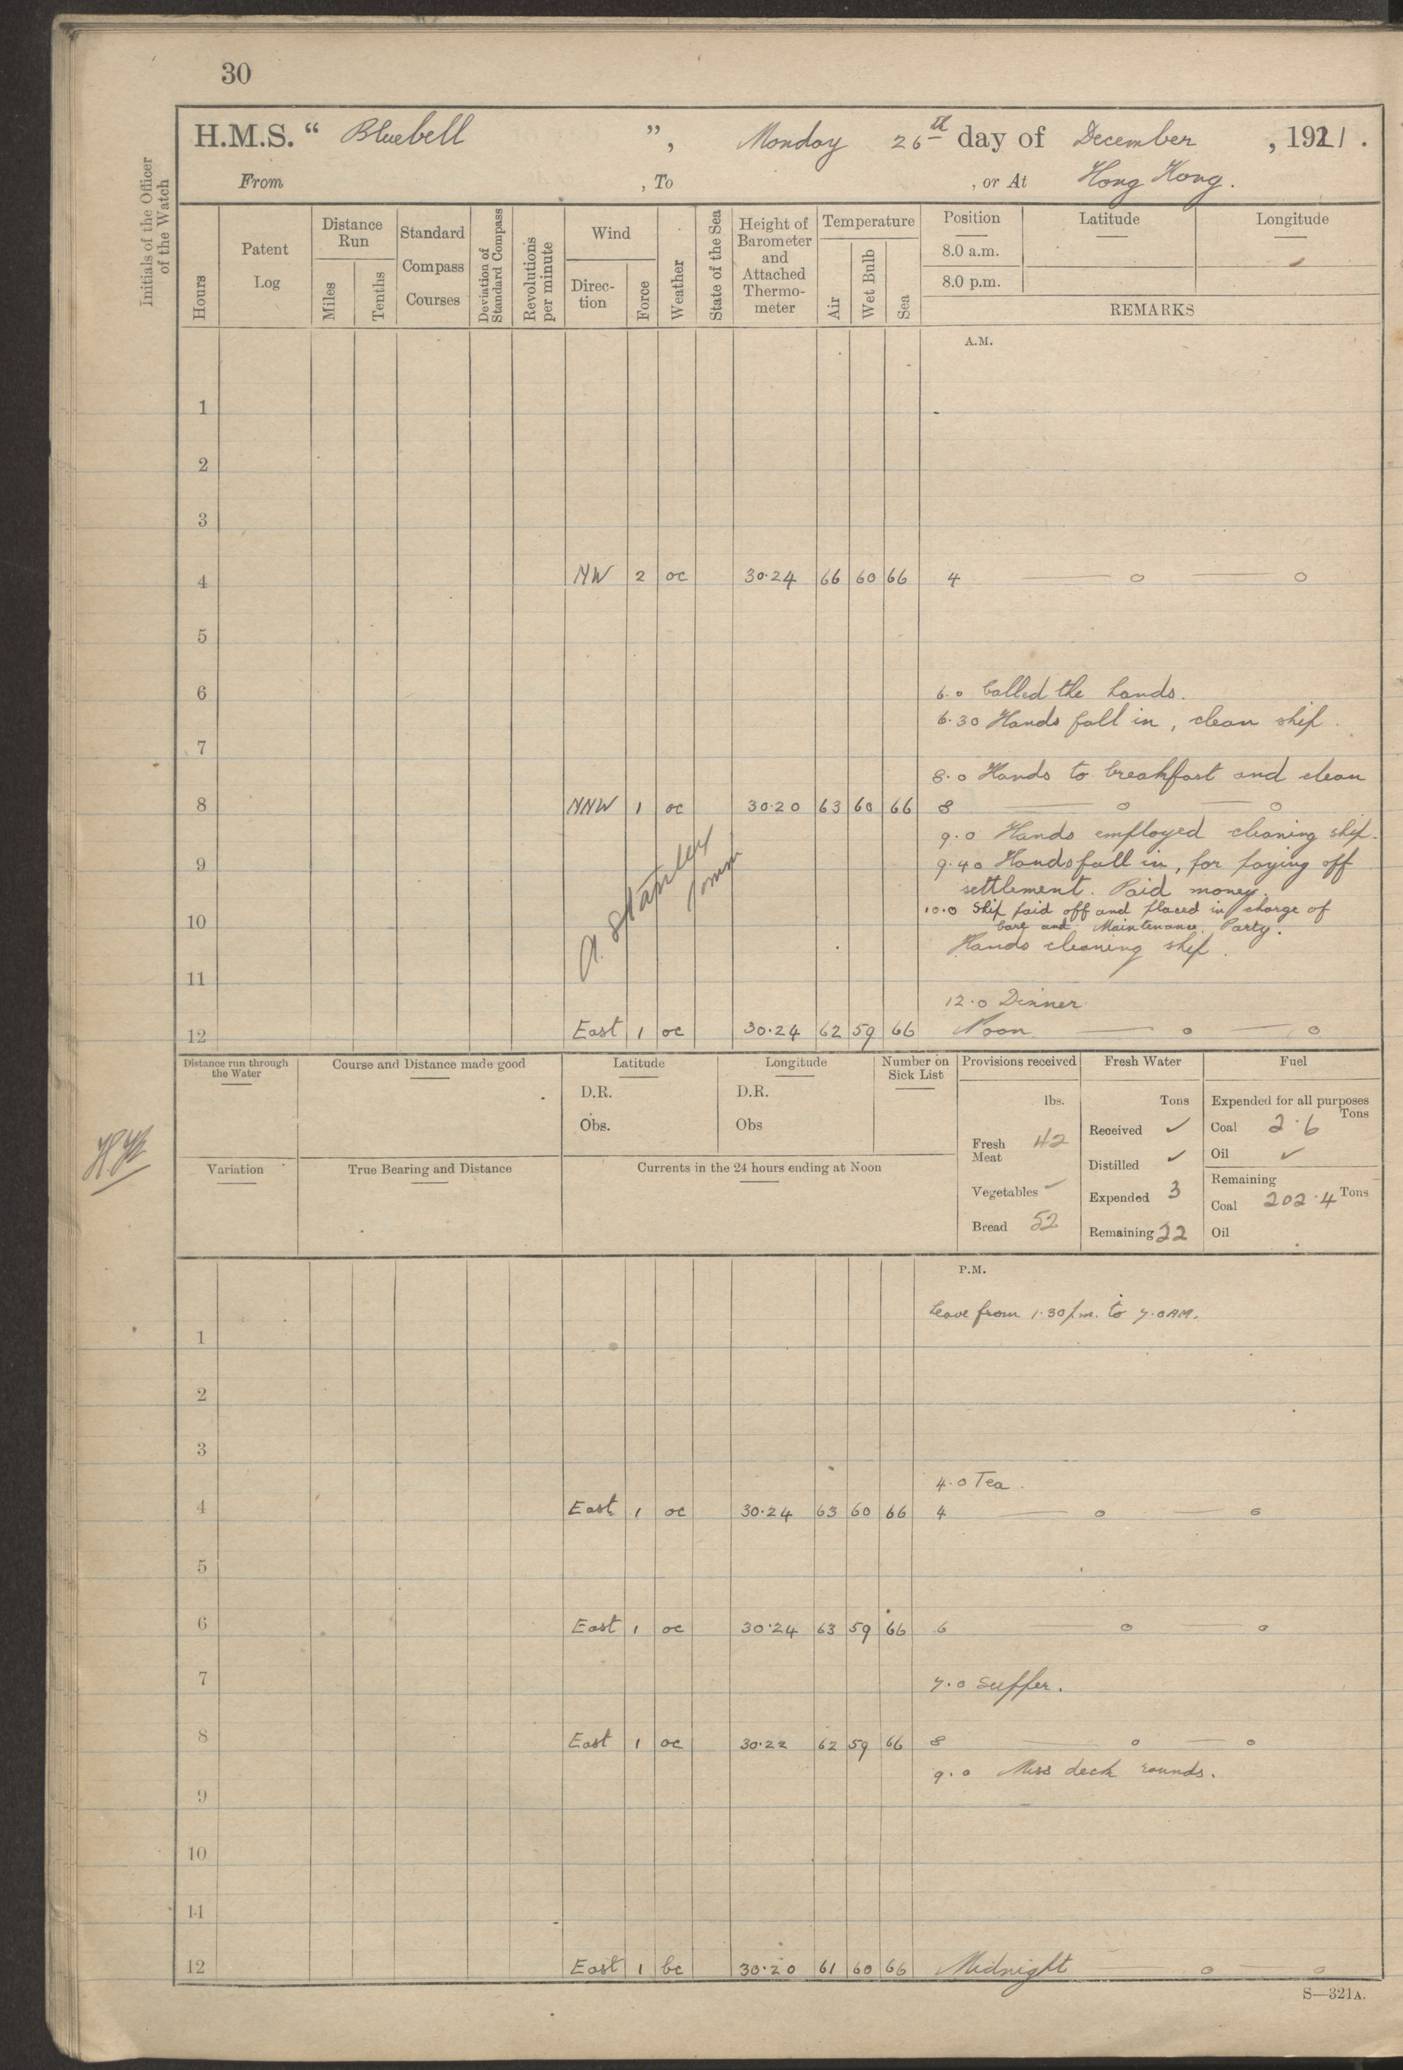 30
H.M.S. “ Bluebell ”, Monday 26th day of December , 1921 .
From , To , or At Hong Kong.
Initials of the Officer of the Watch
Hours
Patent Log
Distance Run
Miles
Tenths
Standard Compass Courses
Deviation of Standard Compass
Revolutions per minute
Wind
Direc-tion
Force
Weather
State of the Sea
Height of Barometer and Attached Thermo-meter
Temperature
Air
Wet Bulb
Sea
Position
Latitude
Longitude
8.0 a.m.
8.0 p.m.
REMARKS
A.M.
1
2
3
4 NW 2 oc 30·24 66 60 66 4 — o — o
5
6 6.0 Called the hands.
6.30 Hands fall in, clean ship.
7
8.0 Hands to breakfast and clean
8 NNW 1 oc 30·20 63 60 66 8 — o — o
9.0 Hands employed cleaning ship.
9 9.40 Hands fall in, for paying off
settlement. Paid money.
10 10.0 Ship paid off and placed in charge of
Care and Maintenance Party.
Hands cleaning ship.
A. Stanley
Comm
11
12.0 Dinner
12 East 1 oc 30·24 62 59 66 Noon — o — o
Distance run through the Water
Course and Distance made good
Latitude
D.R.
Obs.
Longitude
D.R.
Obs
Number on Sick List
Provisions received
lbs.
Fresh Meat 42
Vegetables -
Bread 52
Fresh Water
Tons
Received ✓
Distilled ✓
Expended 3
Remaining 22
Fuel
Expended for all purposes
Tons
Coal 2·6
Oil ✓
Remaining
Coal 202·4 Tons
Oil
Variation
True Bearing and Distance
Currents in the 24 hours ending at Noon
P.M.
Leave from 1.30 p.m. to 7.0 AM.
1
2
3
4.0 Tea.
4 East 1 oc 30·24 63 60 66 4 — o — o
5
6 East 1 oc 30·24 63 59 66 6 — o — o
7 7.0 Supper.
8 East 1 oc 30·22 62 59 66 8 — o — o
9.0 Mess deck rounds.
9
10
11
12 East 1 bc 30·20 61 60 66 Midnight — o — o
S—321A.